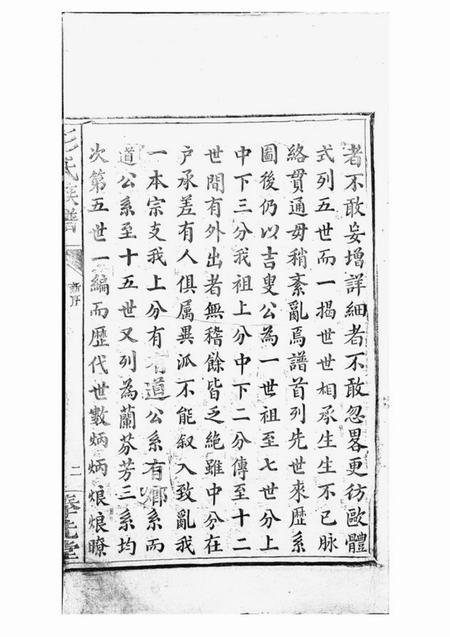 者不敢妄增詳細者不敢忽畧更彷歐體
式列五世而一揭世世相承生生不已脉
絡貫通毋稍紊亂焉譜首列先世來歷系
圖後仍以吉叟公為一世祖至七世分上
中下三分我祖上分中下二分傳至十二
世間有外出者無稽餘皆乏絶雖中分在
户承差有人俱属異派不能叙入致亂我
一本宗支我上分有道公系有鄉系而
道公系至十五世又列為蘭芬芳三系均
次第五世一編而歷代世數炳炳烺烺瞭
氏族譜
新序
二
奉先堂